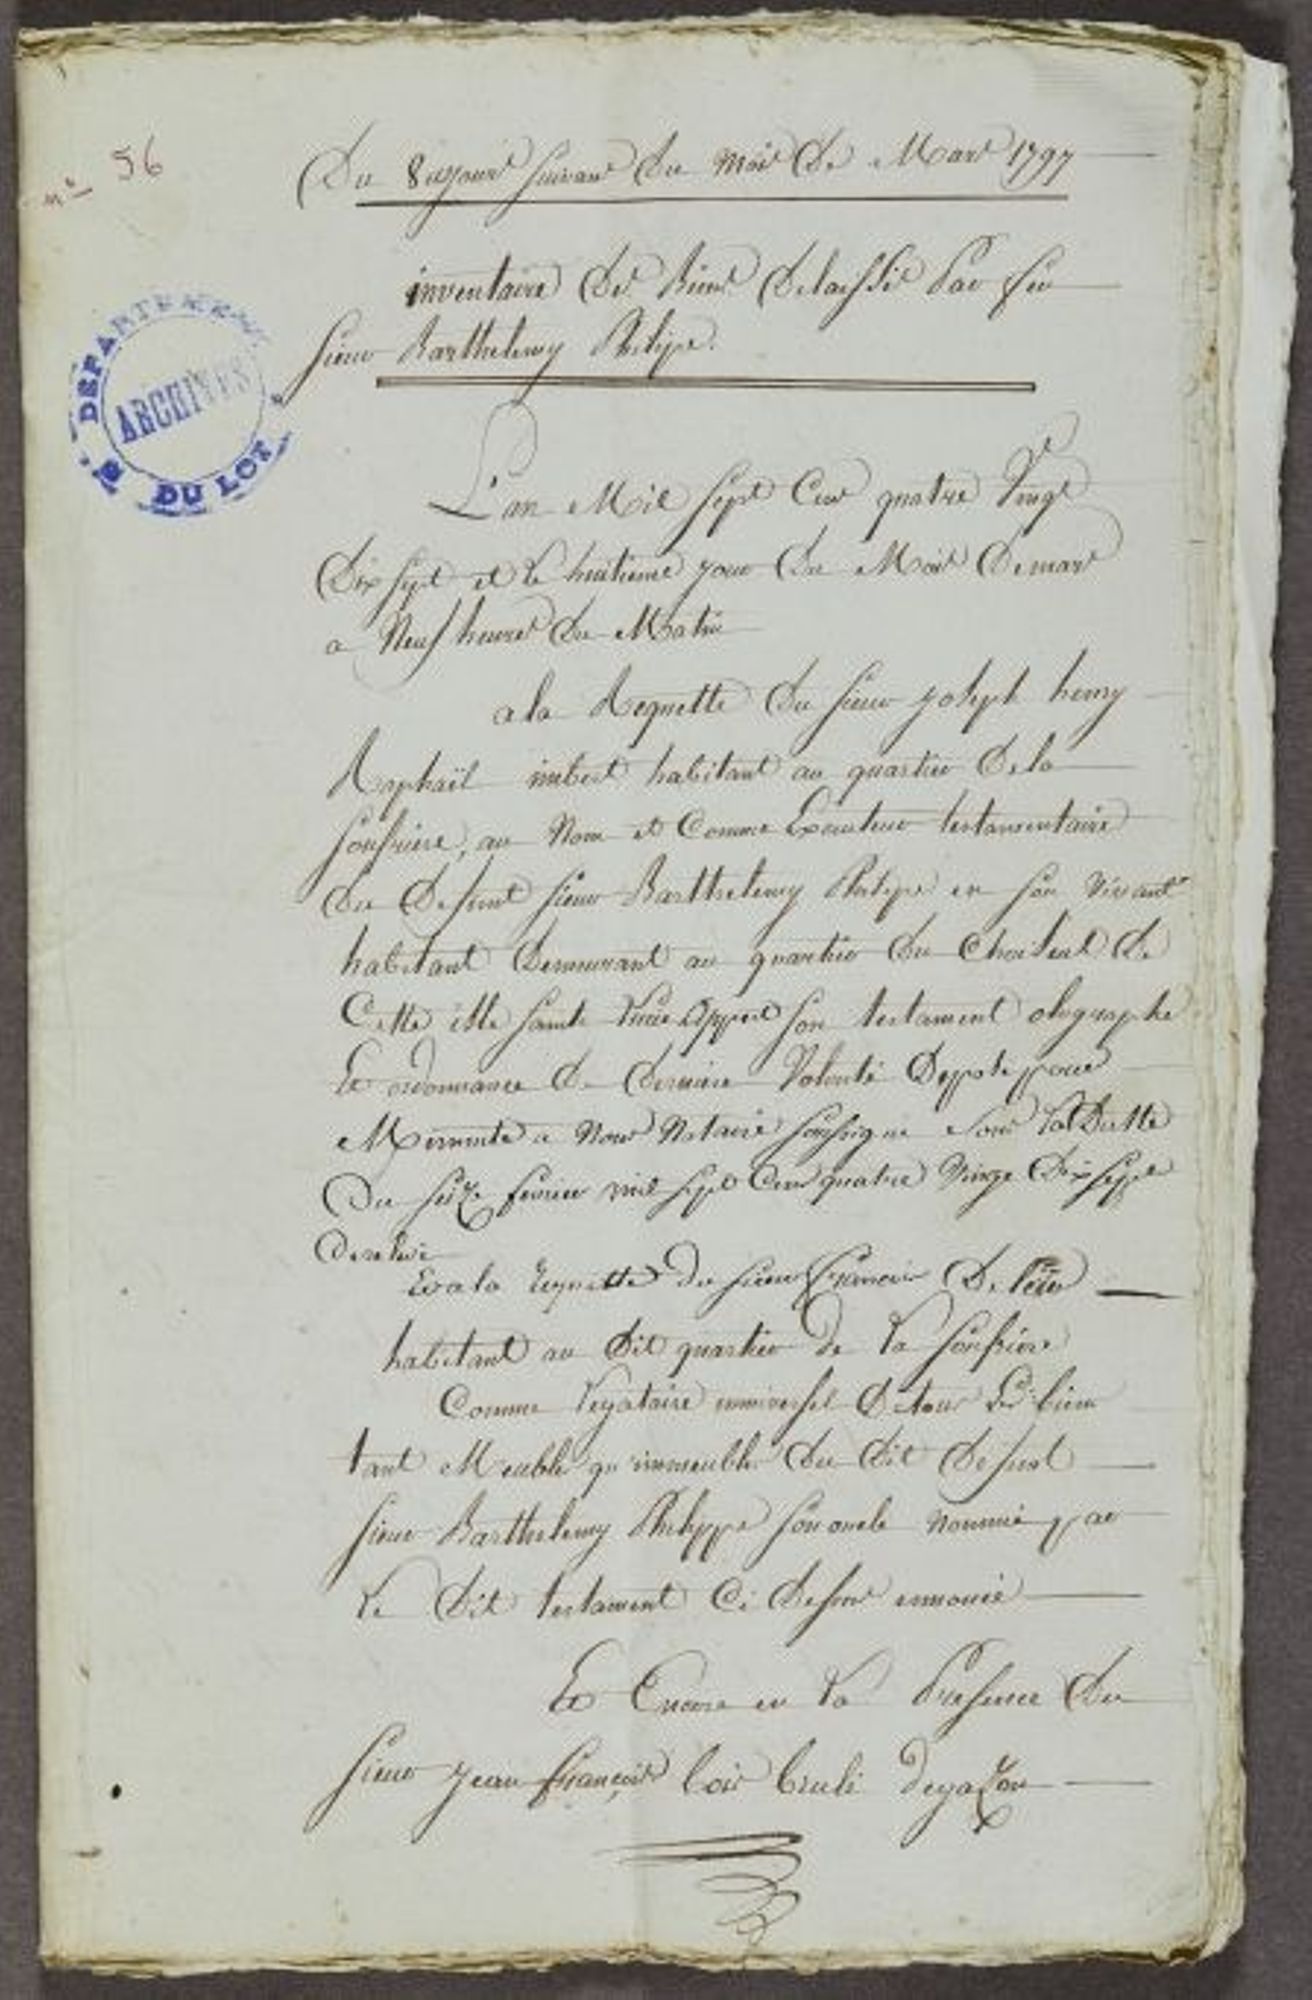 nº 56
Du 8 et jours suivans du Mois De Mars 1797
inventaire Des Biens Delaissés Par feu
sieur Barthelemy Philipe.
DÉPARTEMENT
ARCHIVES
DU LOT
L'an Mil sept Cens quatre Vingt
Dix sept et le huitieme jour Du Mois Demars
a Neuf heures Du Matin
ala Requette Du sieur joseph henry
Raphaël imbert habitant au quartier Dela
soufriere, au Nom et Comme Executeur testamentaire
Du Defunt sieur Barthelemy Philipe en son Vivant
habitant Demeurant au quartier Du Choiseul De
Cette isle sainte Lucie appert son testament olographe
Et ordonnance De Derniere Volonté Deposé pour
Minute a Nous Notaire soussigné sous la Datte
Du seize fevrier mil sept Cens quatre Vingt Dix sept
Et a la requette du sieur françois De
habitant au Dit quartier de la soufriere
Comme legataire universel De tous Les biens
tant Meubles qu'immeubles Du Dit Defunt
sieur Barthelemy Philippe son oncle nommé par
le Dit testament Ci Dessus ennoncé
Et Encore en la Presence Du
sieur jean françois loir bruli deyazou